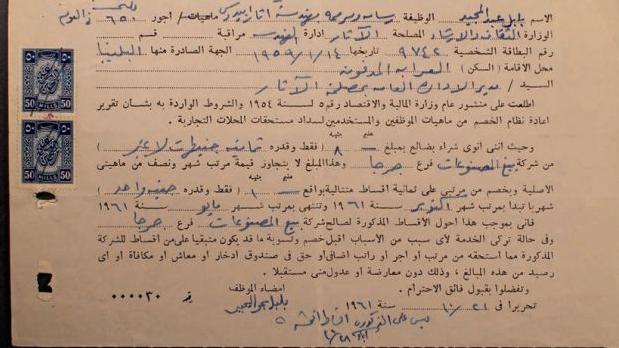 الاسم بلبل عبد المجيد الوظيفة رسام ومرممه بهندسة آثار أبيدوس ماهيات / أجور ٦٥٠
الوزارة الثقافة والارشاد المصلحة الآثار ادارة الهندسة مراقبة قسم
رقم البطاقة الشخصية ٩٧٤٢ تاريخها ١٩٥٩/١/١٤ الجهة الصادرة منها البلينا
محل الاقامة ( السكن ) العرابه المدفونه
السيد / مدير الادارة العامه بمصلحة الآثار
اطلعت على منشور عام وزارة المالية والاقتصاد رقم ٥ لسنة ١٩٥٤ والشروط الواردة به بشأن تقرير
اعادة نظام الخصم من ماهيات الموظفين والمستخدمين لسداد مستحقات المحلات التجارية .
وحيث اننى انوى شراء بضائع بمبلغ ــ مليم ٨ جنيه ( فقط وقدره ثمانية جنيهات لا غير )
من شركة بيع المصنوعات فرع جرجا وهذا المبلغ لا يتجاوز قيمة مرتب شهر ونصف من ماهيتى
الأصلية وبخصم من مرتبى على ثمانية اقساط متتالية بواقع ــ ١ ( فقط وقدره جنيه واحد )
شهريا تبدأ بمرتب شهر اكتوبر سنة ١٩٦١ وتنتهى بمرتب شهر مايو سنة ١٩٦١
فانى بموجب هذا احول الاقساط المذكورة لصالح شركة بيع المصنوعات فرع جرجا
وفى حالة تركى الخدمة لأى سبب من الأسباب اقبل خصم وتسوية ما قد يكون متبقيا على من اقساط للشركة
المذكورة مما استحقه من مرتب أو اجر أو راتب اضافى أو حق فى صندوق ادخار أو معاش أو مكافأة أو اى
رصيد من هذه المبالغ ، وذلك دون معارضة أو عدول منى مستقبلا .
وتفضلوا بقبول فائق الاحترام .
امضاء الموظف
تحريرا فى ١٠/٢١ سنة ١٩٦١ بلبل عبد المجيد
نمرة ٠٠٠٠٣٠
ليس على المذكور
٥٠
MILLS
50
50
٥٠
MILLS
50
50